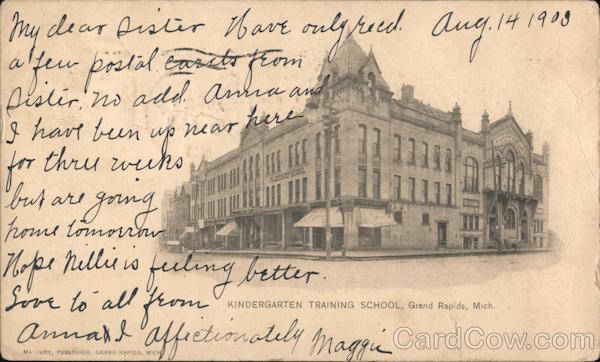 My dear Sister Have only recd. Aug. 14 1903
a few postal cards from
Sister. no add. Anna and
I have been up near here
for three weeks
but are going
home tomorrow
Hope Nellie is feeling better.
Love to all from
KINDERGARTEN TRAINING SCHOOL, Grand Rapids, Mich.
Anna & I Affectionately Maggie
PUBLISHER, GRAND RAPIDS, MICH.
CardCow.com